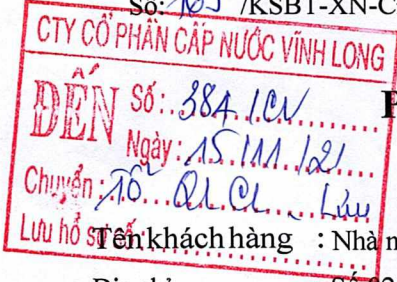 Số: 165 /KSBT-XN-C
CTY CỔ PHẦN CẤP NƯỚC VĨNH LONG
ĐẾN
Số: 384/CN
Ngày: 15/11/21
Chuyển: Tổ QLCL - Lưu
Lưu hồ sơ số:
Tên khách hàng : Nhà